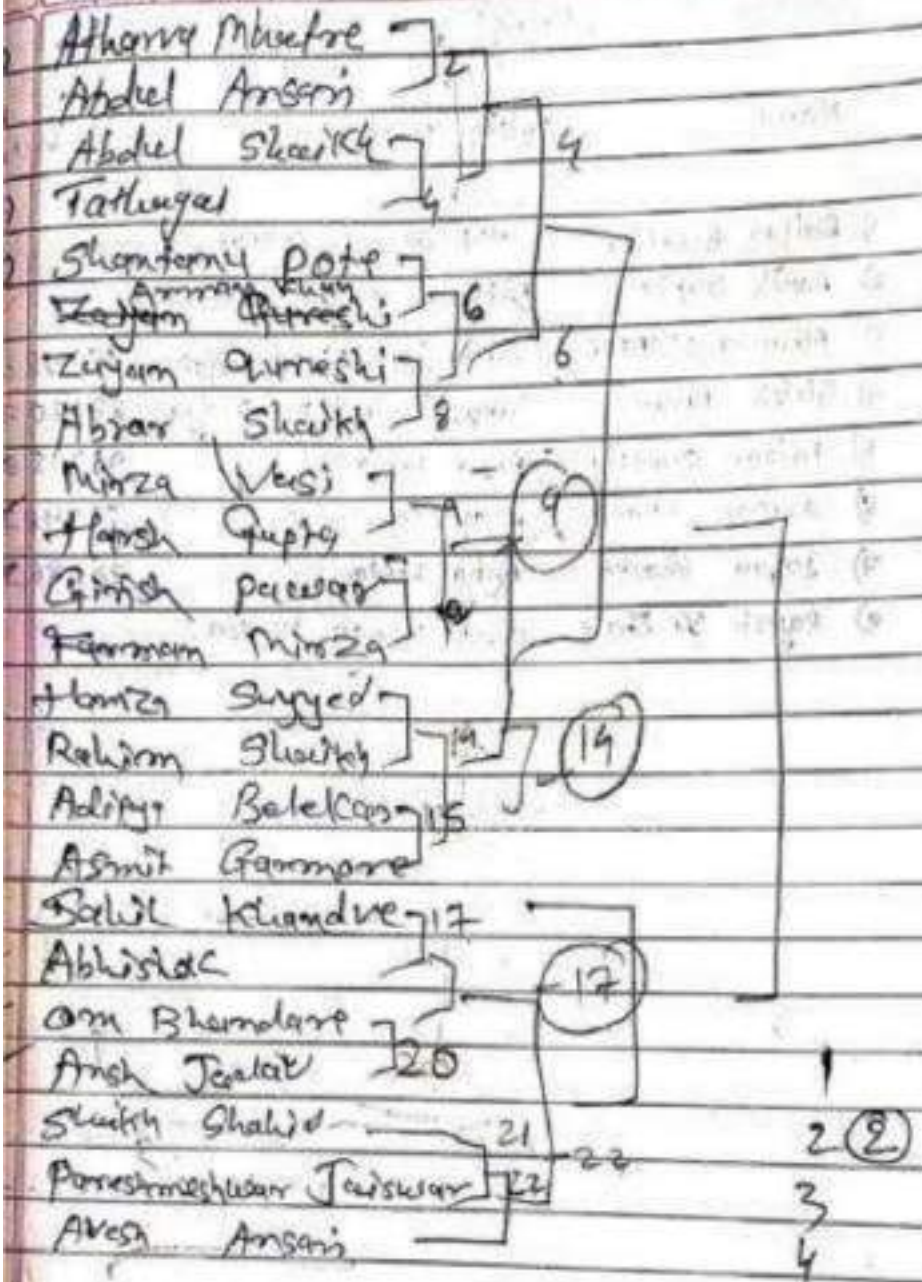 Atharva Mhatre
Abdul Ansari 2
Abdul Shaikh 4
Tathugat 4
Shantanu Pote
Armaan Khan
Zaijam Qureshi 6
Zaijam Qurreshi 6
Abrar Shaikh 8
Mirza Vasi 9
Harsh Gupta
Girish pawar
Farmman Mirza
Hamza Sayyed
Rahim Shaikh 14 14
Aditya Belekar 15
Asmit Gammare
Sahil Khandve 17
Abhishek 17
Om Bhandare
Ansh Jealat 20 1
Shaikh Shahid 21 22 2 2
Parmeshmeshwar Jaiswar 22 3
Avesh Ansari 4